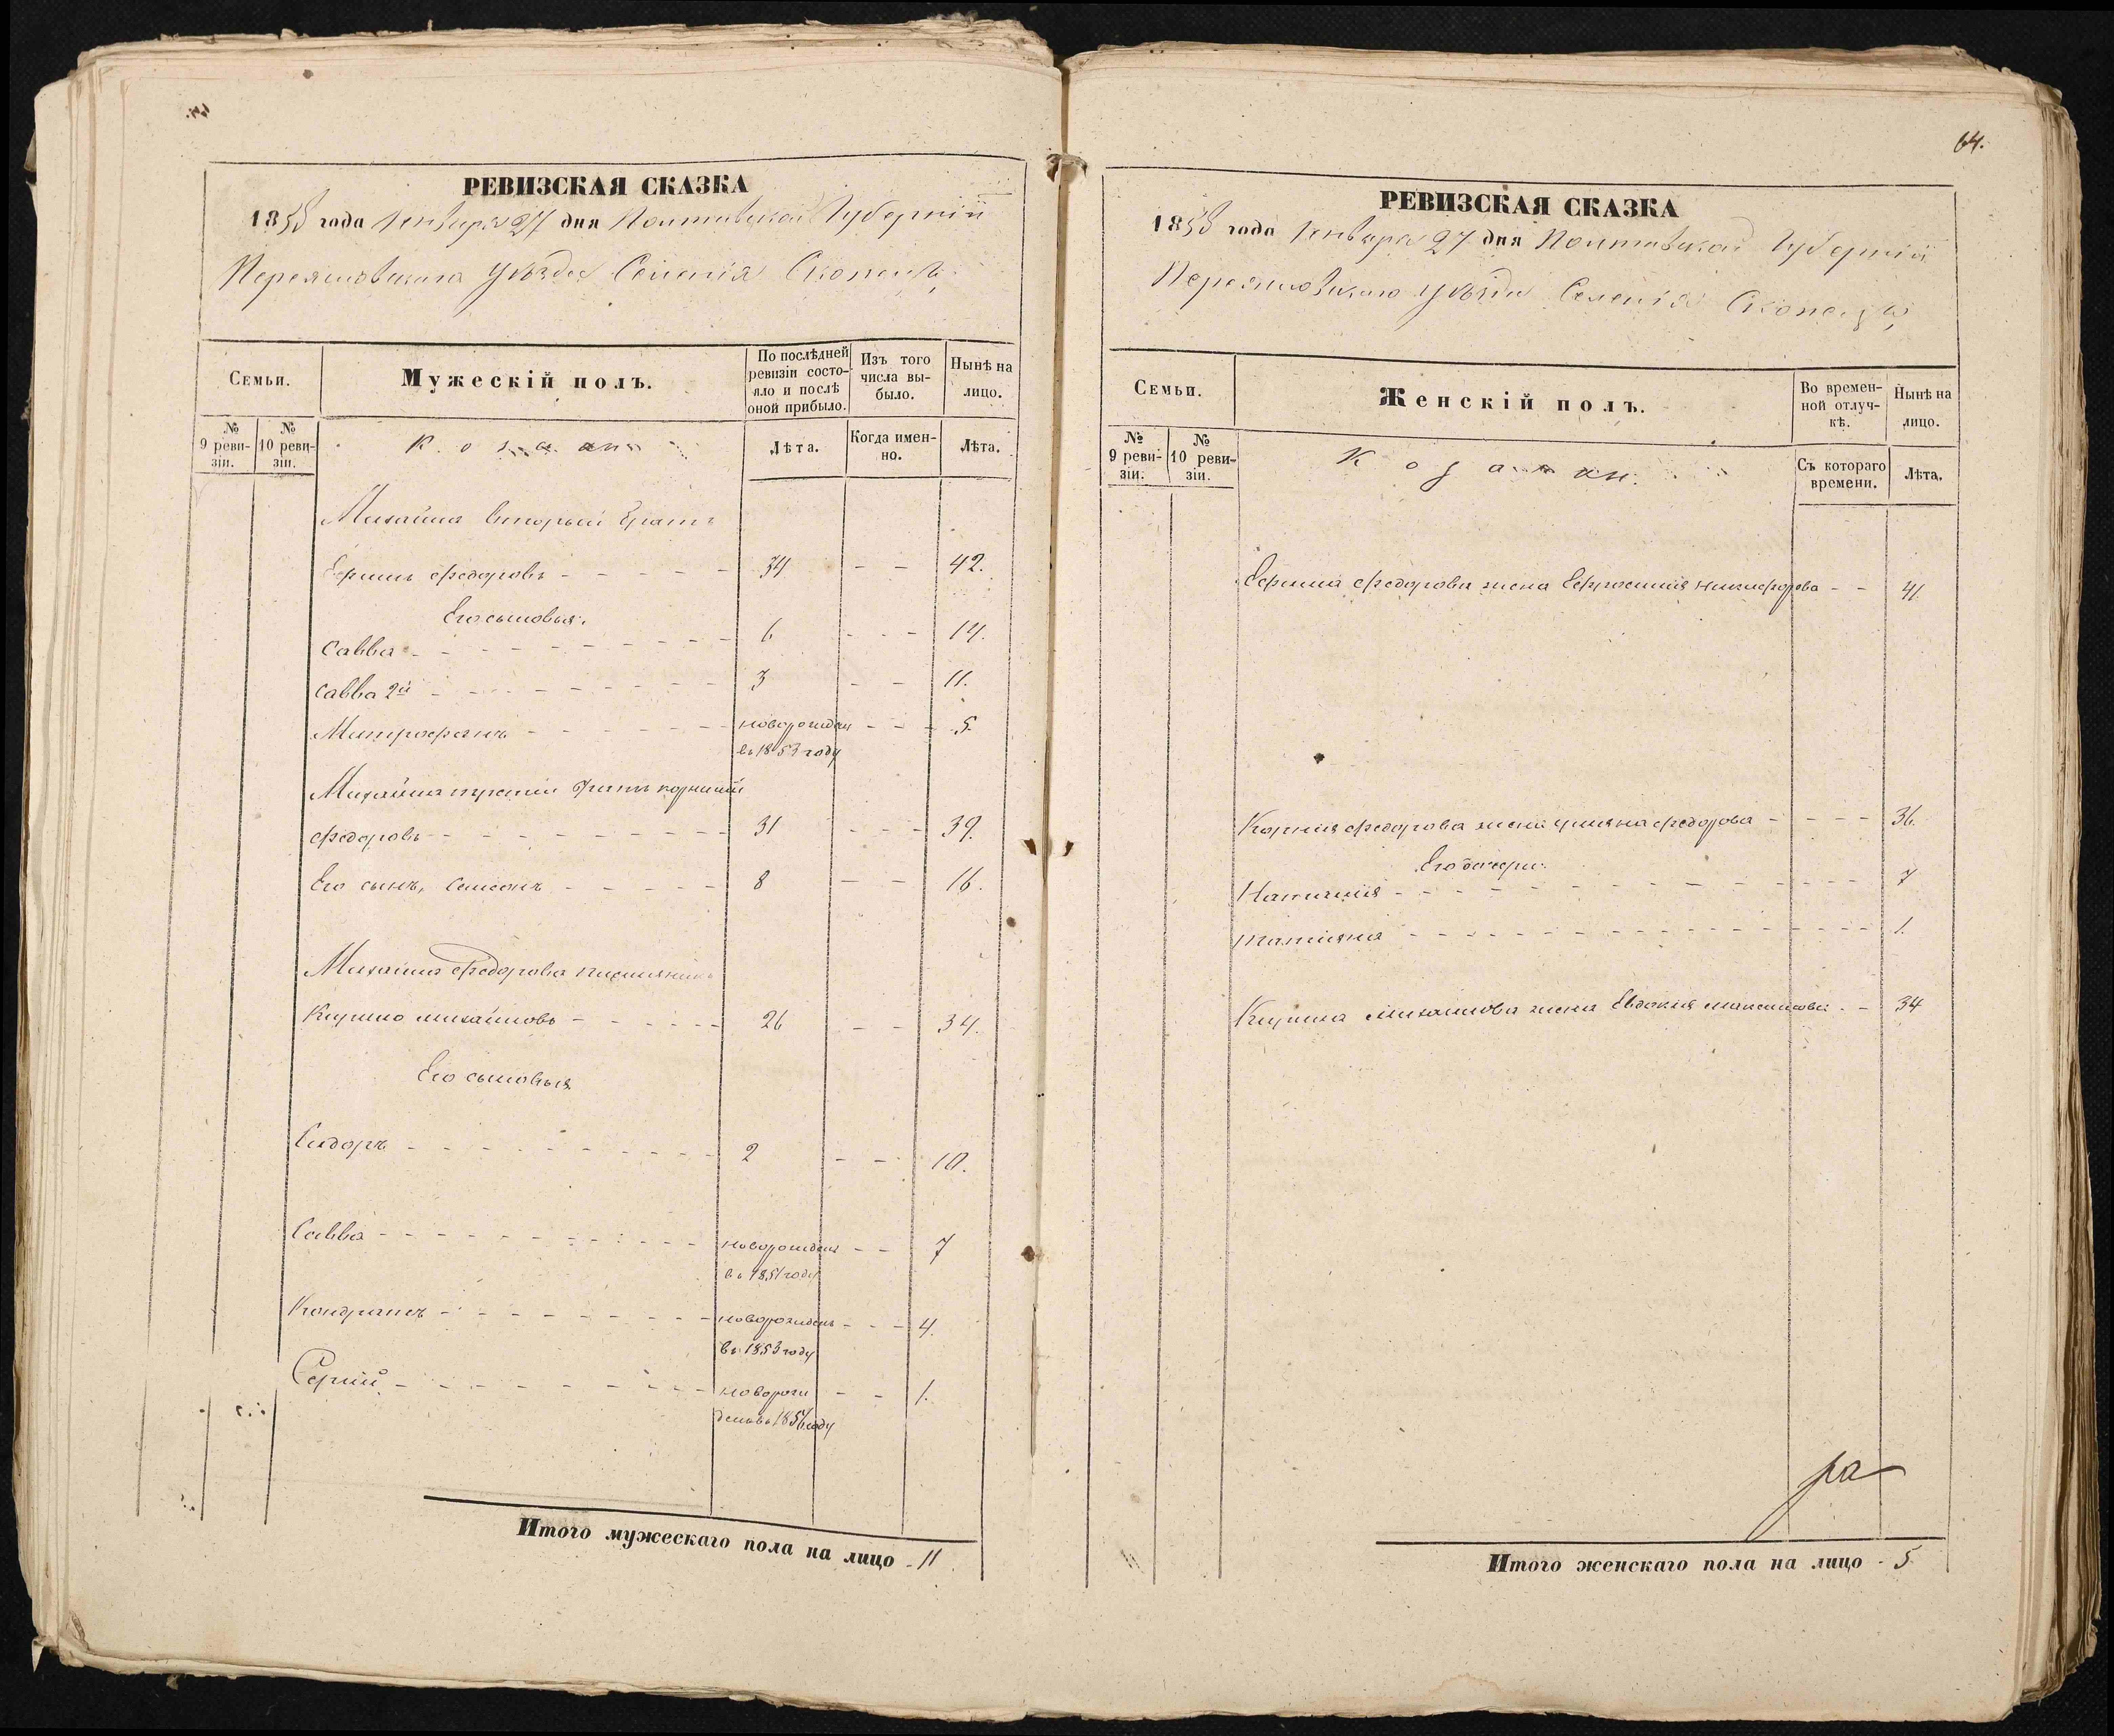 64.
РЕВИЗСКАЯ СКАЗКА
1858 года Января 27 дня Полтавской Губерніи
Переяславскаго уѣзда Селенія Скопецъ
Семьи.
Мужескій полъ.
По послѣдней ревизіи состояло и послѣ оной прибыло.
Изъ того числа выбыло.
Нынѣ на лицо.
№ 9 ревизіи.
№ 10 ревизіи.
Козаки
Лѣта.
Когда именно.
Лѣта.
Михайла вторый братъ
Ефимъ Федоровъ - - - 34 - - 42.
Его сыновья.
Савва - - - 6 - - - 14.
Савва 2й - - - 3 - - 11.
Митрофанъ - - - новорожден - - - 5.
въ 1853 году
Михайла третій братъ Корнилій
Федоровъ - - - 31 - - - 39.
Его сынъ, Самсонъ - - - 8 - - 16.
Михайла Федорова племянникъ
Кирило Михайловъ - - - 26 - - 34.
Его сыновья
Сидоръ - - - 2 - - 10.
Савва - - - новорожденъ - - 7
въ 1851 году
Кондратъ - - - новорожденъ - - - 4.
въ 1853 году
Сергій - - - новорож - - 1.
денъ въ 1856 году
Итого мужескаго пола на лицо - 11
РЕВИЗСКАЯ СКАЗКА
1858 года Января 27 дня Полтавской Губерніи
Переяславскаго уѣзда Селенія Скопецъ
Семьи.
Женскій полъ.
Во временной отлучкѣ.
Нынѣ на лицо.
№ 9 ревизіи.
№ 10 ревизіи.
Козаки.
Съ котораго времени.
Лѣта.
Ефима Федорова жена Ефросинія Никифорова - - 41.
Корнія Федорова жена Ульяна Федорова - - - - 36.
Его дочери.
Наталія - - - 7
Татіяна - - - 1.
Кирила Михайлова жена Евдокія Максимова - - 34
ра
Итого женскаго пола на лицо - 5.